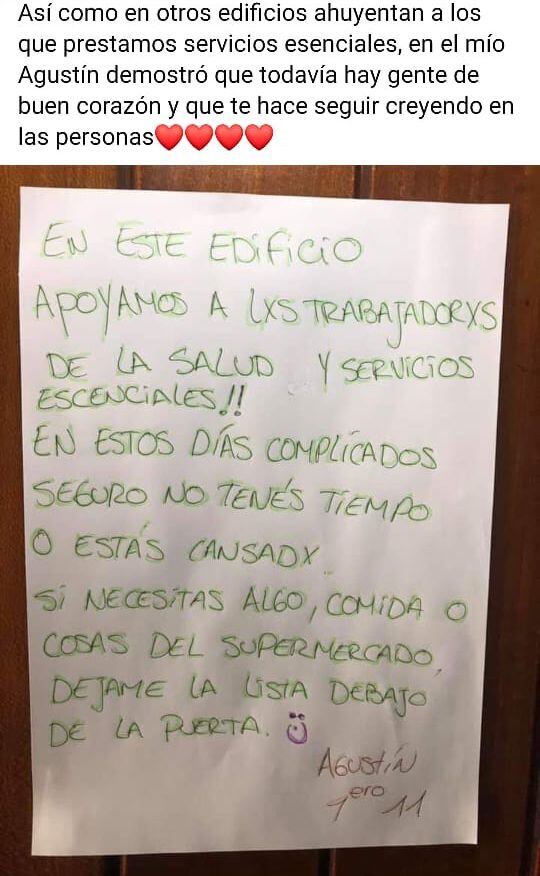 Así como en otros edificios ahuyentan a los
que prestamos servicios esenciales, en el mío
Agustín demostró que todavía hay gente de
buen corazón y que te hace seguir creyendo en
las personas❤️❤️❤️❤️
EN ESTE EDIFICIO
APOYAMOS A LXS TRABAJADORXS
DE LA SALUD Y SERVICIOS
ESCENCIALES!!
EN ESTOS DÍAS COMPLICADOS
SEGURO NO TENÉS TIEMPO
O ESTÁS CANSADX
SI NECESITAS ALGO, COMIDA O
COSAS DEL SUPERMERCADO,
DEJAME LA LISTA DEBAJO
DE LA PUERTA.
AGUSTÍN
1ero 11